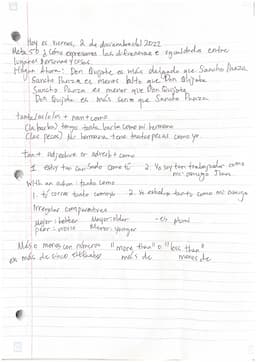 Hoy es viernes, 2 de diciembre del 2022
Meta 50: ¿Cómo expresamos las diferencias e igualdades entre
lugares, personas y cosas.
Hagan Ahora: Don Quijote es más delgado que Sancho Panza
Sancho Panza es menos alto que Don Quijote
Sancho Panza es menor que Don Quijote
Don Quijote es más serio que Sancho Panza
tanto/a/os/as + noun + como
(la barba) tengo tanta barba como mi hermano
(las pecas) No hermana tiene tantas pecas como yo
tan + adjective or adverb + como
1. estoy tan cansado como tú 2. Yo soy tan trabajador como
mi amigo Juan
With an action: tanto como
1. tú corres tanto como yo 2. Yo estudio tanto como mi amigo
Irregular comparatives
mejor: better Mayor: older -es plural
peor: worse Menor: younger
Más o menos con números "more than" o "less than"
es más de cinco más de menos de